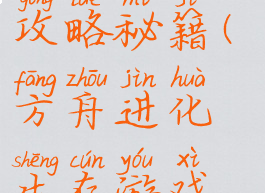 gōng lüè mì jí
攻略秘籍(
fāng zhōu jìn huà
方舟进化
shēng cún yóu xì
生存游戏